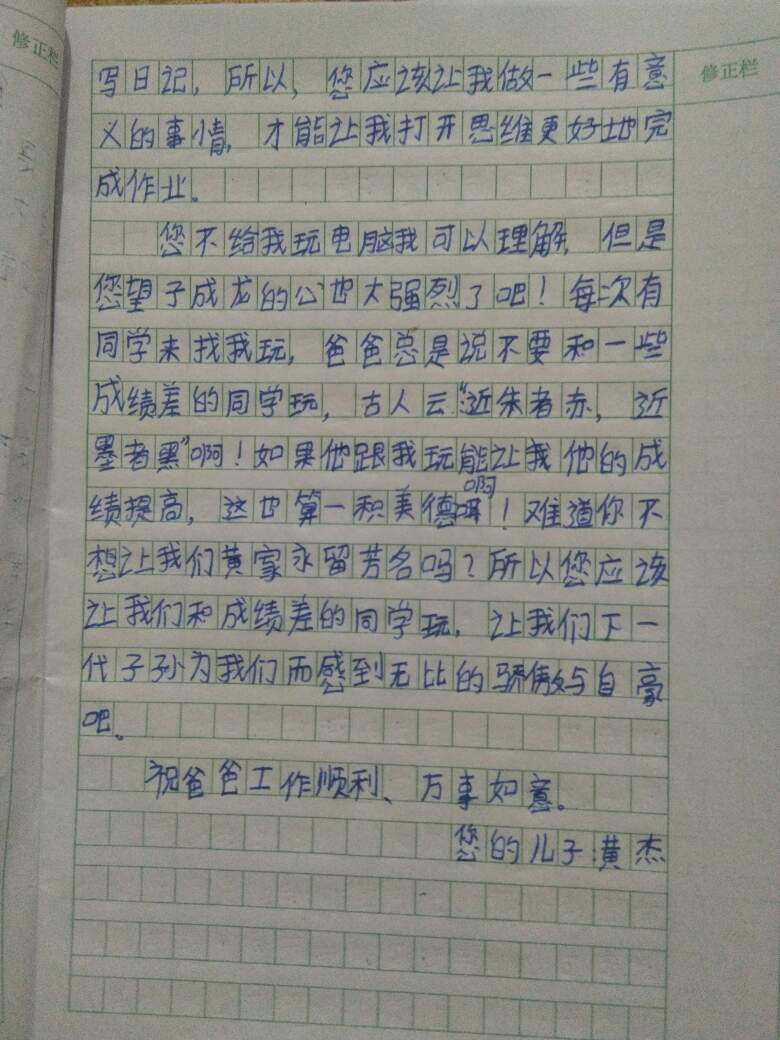 修正栏
修正栏
写日记，所以，您应该让我做一些有意
义的事情，才能让我打开思维更好地完
成作业。
您不给我玩电脑我可以理解，但是
您望子成龙的心也太强烈了吧！每次有
同学来找我玩，爸爸总是说不要和一些
成绩差的同学玩，古人云“近朱者赤，近
墨者黑”啊！如果他跟我玩能让我他的成
啊
绩提高，这也算一积美德！难道你不
想让我们黄家永留芳名吗？所以您应该
让我们和成绩差的同学玩，让我们下一
代子孙为我们而感到无比的骄傲与自豪
吧。
祝爸爸工作顺利、万事如意。
您的儿子：黄杰